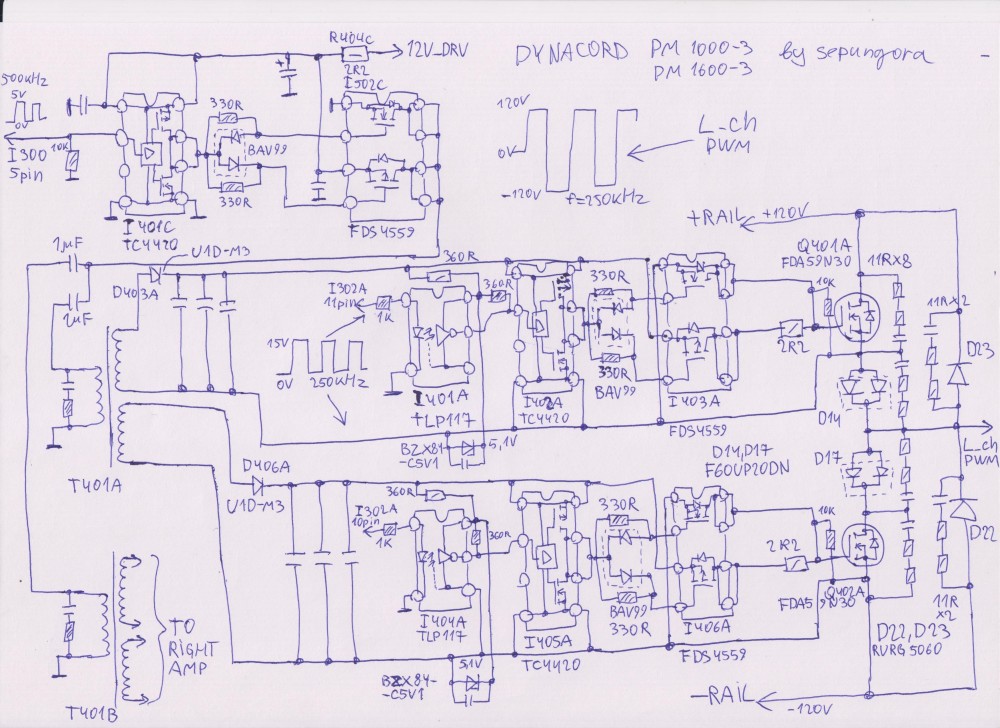 R404C
12V_DRV
2R2
DYNACORD PM 1000-3 by sepungora
PM 1600-3
500kHz
5V
0V
I300
5pin
10K
330R
BAV99
330R
I502C
I401C
TC4420
FDS4559
120V
0V
-120V
f=250kHz
L_ch
PWM
+RAIL
+120V
1µF
U1D-M3
D403A
1µF
360R
I302A
11pin
1K
360R
330R
330R
BAV99
Q401A
FDA59N30
11R×8
10K
2R2
11R×2
D23
15V
0V
250kHz
I401A
TLP117
I402A
TC4420
I403A
FDS4559
D14
BZX84-
-C5V1
5,1V
L_ch
PWM
T401A
D406A
U1D-M3
D14,D17
F60UP20DN
D17
360R
I302A
10pin
1K
360R
330R
BAV99
330R
10K
2R2
D22
I404A
TLP117
I405A
TC4420
I406A
FDS4559
FDA59N30
Q402A
11R
×2
D22,D23
RURG5060
5,1V
BZX84-
-C5V1
TO
RIGHT
AMP
T401B
-RAIL
-120V